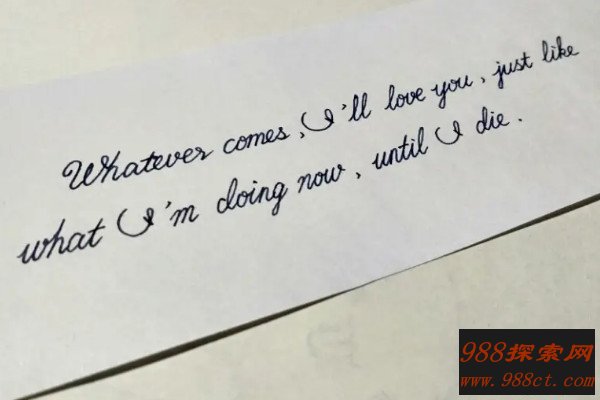 Whatever comes, I'll love you, just like
what I'm doing now, until I die.
988探索网
www.988ct.com